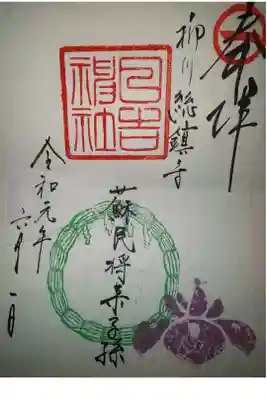 奉拝
柳川総鎮守
日吉神社
蘇民将来子孫
令和元年
六月一日